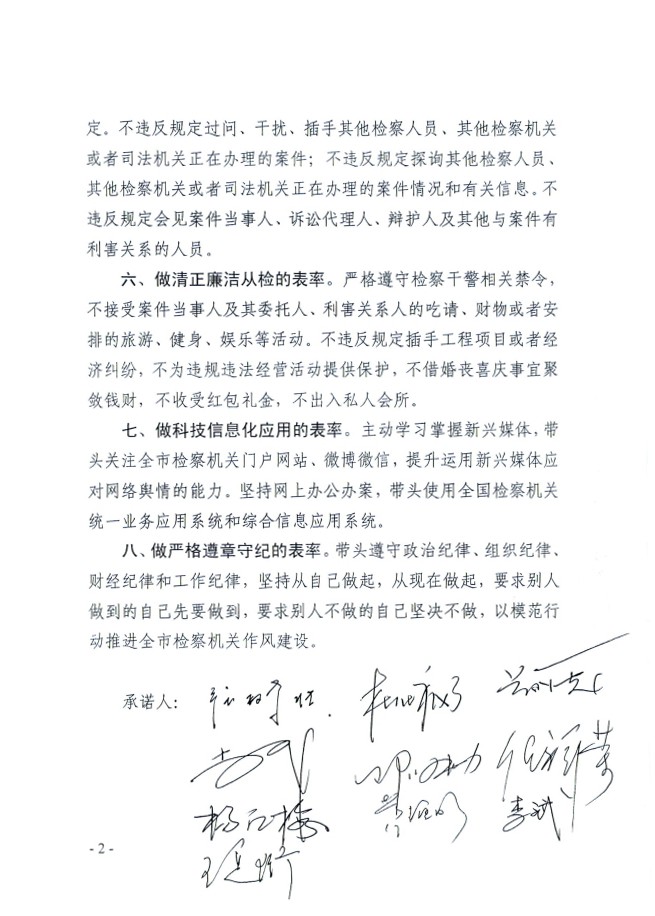 定。不违反规定过问、干扰、插手其他检察人员、其他检察机关
或者司法机关正在办理的案件；不违反规定探询其他检察人员、
其他检察机关或者司法机关正在办理的案件情况和有关信息。不
违反规定会见案件当事人、诉讼代理人、辩护人及其他与案件有
利害关系的人员。
六、做清正廉洁从检的表率。严格遵守检察干警相关禁令，
不接受案件当事人及其委托人、利害关系人的吃请、财物或者安
排的旅游、健身、娱乐等活动。不违反规定插手工程项目或者经
济纠纷，不为违规违法经营活动提供保护，不借婚丧喜庆事宜聚
敛钱财，不收受红包礼金，不出入私人会所。
七、做科技信息化应用的表率。主动学习掌握新兴媒体，带
头关注全市检察机关门户网站、微博微信，提升运用新兴媒体应
对网络舆情的能力。坚持网上办公办案，带头使用全国检察机关
统一业务应用系统和综合信息应用系统。
八、做严格遵章守纪的表率。带头遵守政治纪律、组织纪律、
财经纪律和工作纪律，坚持从自己做起，从现在做起，要求别人
做到的自己先要做到，要求别人不做的自己坚决不做，以模范行
动推进全市检察机关作风建设。
承诺人：
李斌
- 2 -